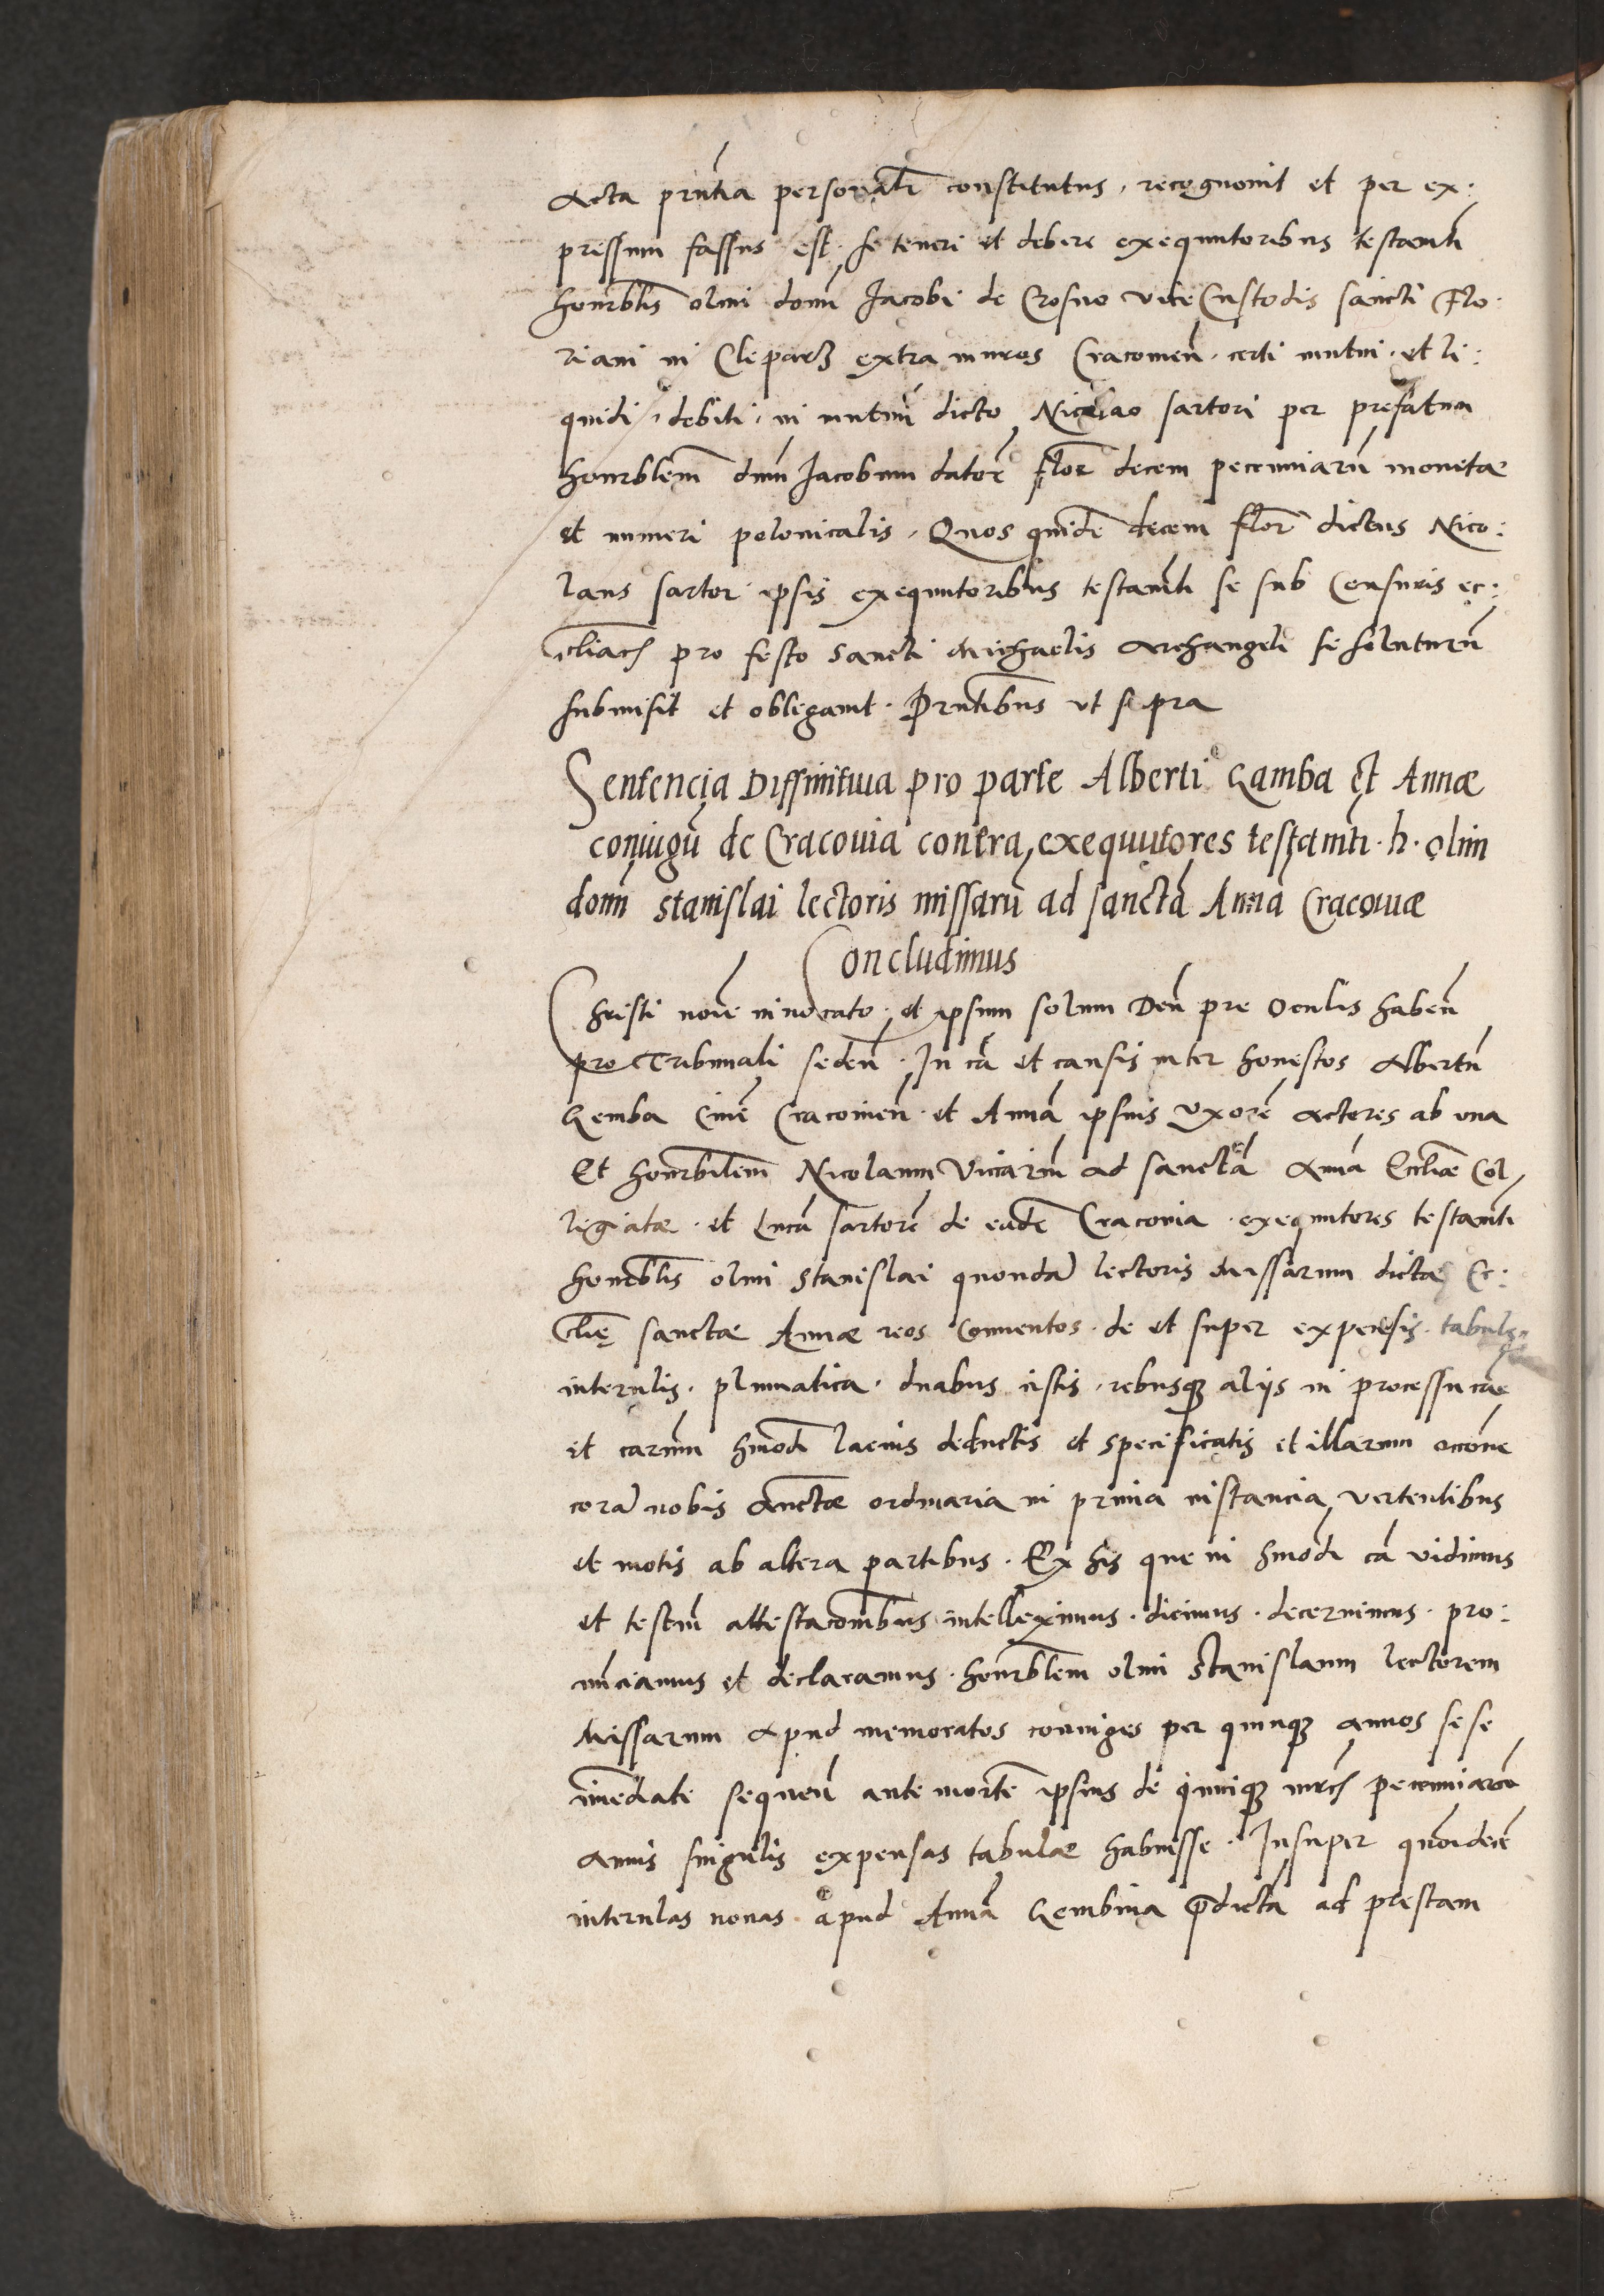 Acta pñtia personalr̄ constitutus, recognouit et per ex:
pressum fassus est se teneri et debere exequutoribus testamti
honrblis olim domī Jacobi de Crosno Vice Custodis sancti Flo:
riani in Cleparz extra muros Cracouieñ. certi mutui. et li:
quidi, debiti, in mutuū dicto Nicolao sartori per prefatum
honrblem dnūm Jacobum dator̄ flor̄ decem pecuniarū monetæ
et numeri polonicalis, Quos quidē decem flor̄ dictus Nico:
laus sartor ipsis exequutoribus testamti se sub Censuris ec:
cliacs pro festo Sancti Michaelis Archangeli se soluturū
submisit et obligauit. Prntibus vt supra
Sentencia Diffinitiua pro parte Alberti Gamba Et Annæ
coniugū de Cracouia contra exequutores testamti. h. olim
domī Stanislai lectoris missarū ad sanctā Annā Cracouiæ
Concludimus
Christi noīe inuocato. et ipsum solum Deū pre Oculis habeñ
pro Tribunali sedeñ. In cā et causis inter honestos Albertū
Gemba Ciuē Cracouieñ. et Annā ipsius Vxorē Actores ab vna
Et honrbilem Nicolaum Vicariū ad sanctā Annā Eccliæ Col
legiatæ. et Lucā sartorē de eadē Cracouia. exequutores testamti
honrblis olim Stanislai quondā lectoris Missarum dictæ Ec:
clię sanctæ Annæ reos Conuentos. de et super expensis. tabulæ
interulis. plumatica. duabus cistis, rebusqz alijs in processu cāe
et carum hmōdi lacius deductis et specificatis et illarum occōne
corā nobis Anctæ ordinaria in prima instancia, vertentibus
et motis ab altera partibus. Ex his que in hmōdi cā vidimus
et testiū attestacōnibus intelleximus. dicimus. decernimus. pro:
nūciamus et declaramus. honrblem olim Stanislaum lectorem
Missarum Apud memoratos coniuges per quinqz Annos sese
imēdiate sequeñ ante mortē ipsius de quinqz mrcs pecuniarū
Annis singulis expensas tabulæ habuisse. Insuper
interulas nouas apud Annā Gembina p̄dictā ad prestam